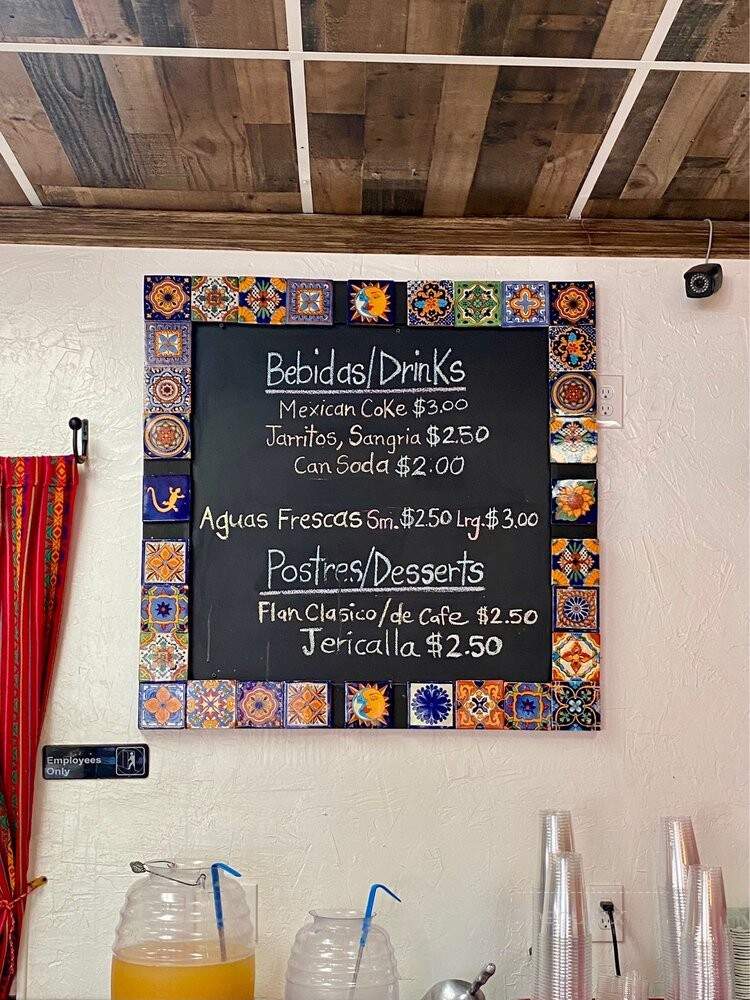 Bebidas/Drinks
Mexican Coke $3.00
Jarritos, Sangria $2.50
Can Soda $2.00
Aguas Frescas Sm. $2.50 Lrg. $3.00
Postres/Desserts
Flan Clasico/de Cafe $2.50
Jericalla $2.50
Employees
Only